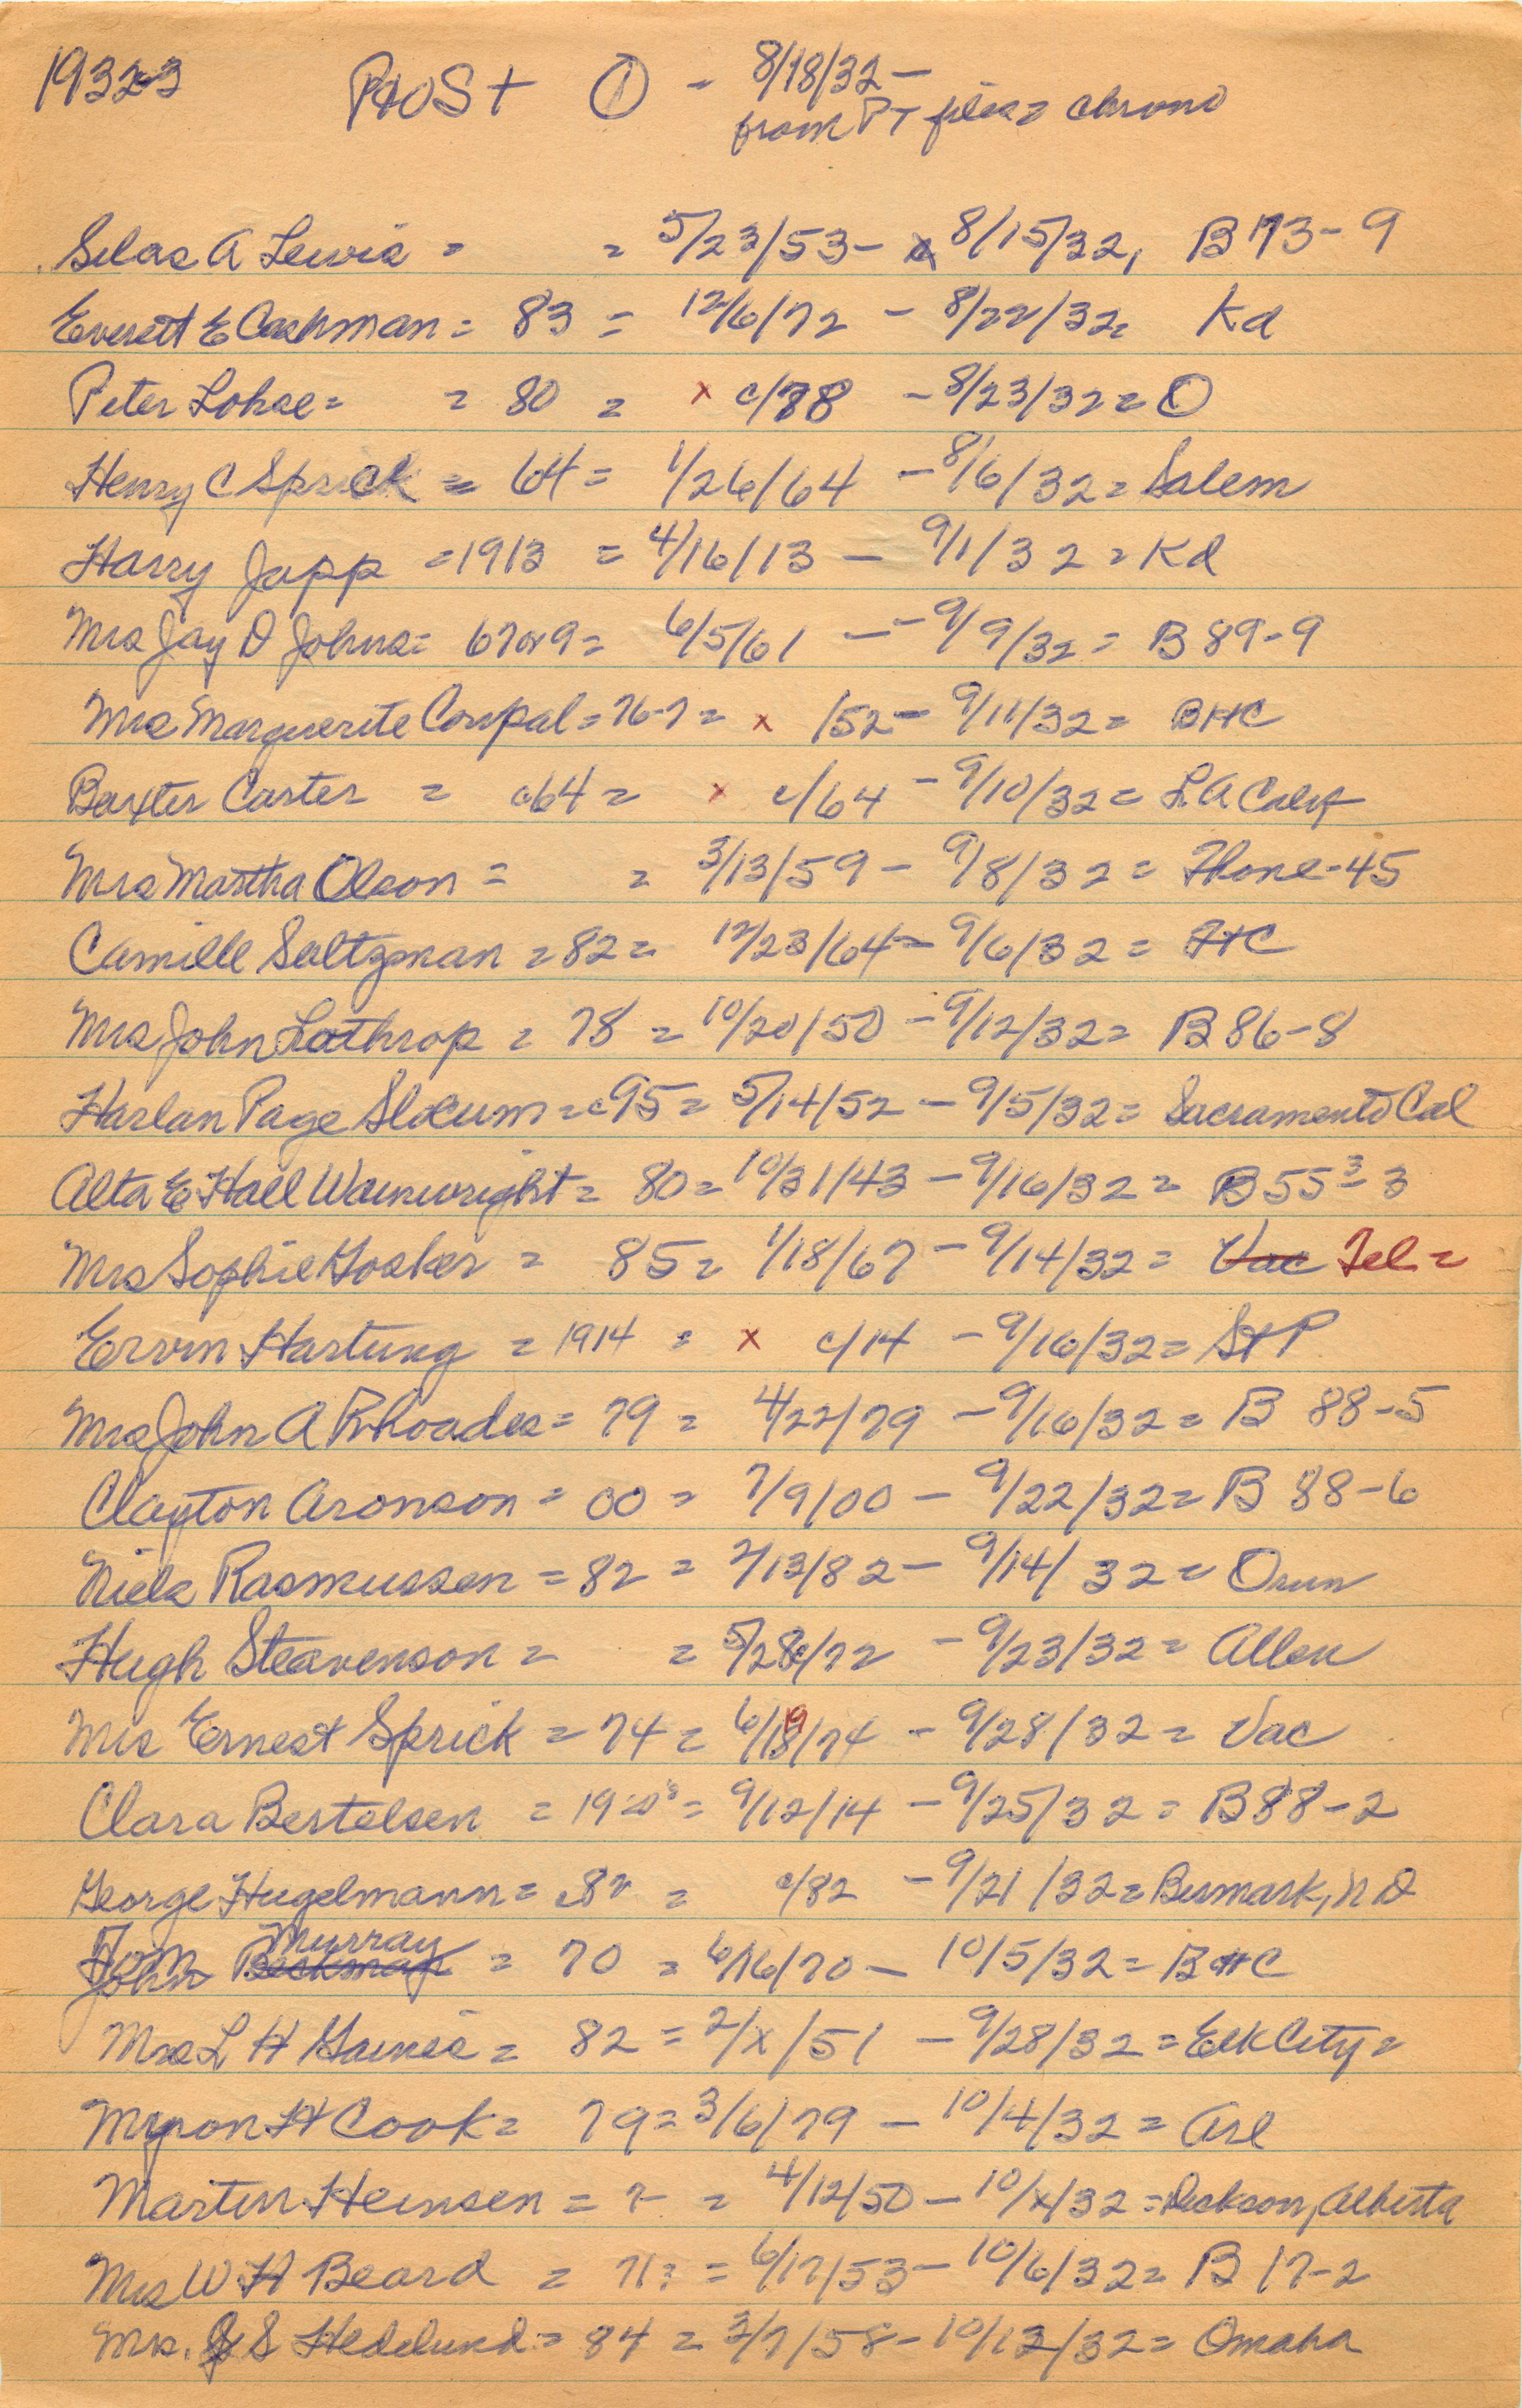 1932-3 Post ① - 8/18/32 -
from PT files = chrono
Silas A Lewis = = 5/23/53 - 8/15/32, B 173-9
Everett E Cashman = 83 = 12/6/72 - 8/22/32 = Kd
Peter Lohse = = 80 = x c/88 - 8/23/32 = O
Henry C Sprick = 64 = 1/26/64 - 8/6/32 = Salem
Harry Japp = 1913 = 4/16/13 - 9/1/32 = Kd
Mrs Jay D Johns = 67 or 9 = 6/5/61 - 9/9/32 = B 89-9
Mrs Marguerite Coupal = 76-7 = x 152 - 9/11/32 = BHC
Baxter Carter = c64 = x c/64 - 9/10/32 = LA Calif
Mrs Martha Olson = = 3/13/59 - 9/8/32 = -45
Camille Saltzman = 82 = 12/23/64 - 9/6/32 = HC
Mrs John Lathrop = 78 = 10/20/50 - 9/12/32 = B 86-8
Harlan Page Slocum = c95 = 5/14/52 - 9/5/32 = Sacramento Cal
Alta E Hall Wainwright = 80 = 10/31/43 - 9/16/32 = B 55 3/= 3
Mrs Sophie Gosker = 85 = 1/18/67 - 9/14/32 = Vac Tel =
Ervin Hartung = 1914 = x c/14 - 9/16/32 = St P
Mrs John A Rhoades = 79 = 4/22/79 - 9/16/32 = B 88-5
Clayton Aronson = 00 = 7/9/00 - 9/22/32 = B 88-6
Niels Rasmussen = 82 = 2/13/82 - 9/14/32 = Orum
Hugh Steavenson = = 5/28/72 - 9/23/32 = Allen
Mrs Ernest Sprick = 74 = 6/19/74 - 9/28/32 = Vac
Clara Bertelsen = 1920's = 9/12/14 - 9/25/32 = B 88-2
George Hugelmann = c82 = c/82 - 9/21/32 = Bismark, ND
Tom Murray
John Beckman = 70 = 6/16/70 - 10/5/32 = BHC
Mrs L H Gaines = 82 = 2/x/51 - 9/28/32 = Elk City =
Myron H Cook = 79 = 3/6/79 - 10/4/32 = Arl
Martin Heinsen = ?- = 4/12/50 - 10/x/32 = Dickson, Alberta
Mrs W H Beard = 71? = 6/17/53 - 10/6/32 = B 17-2
Mrs. S Hedelund = 84 = 3/7/58 - 10/12/32 = Omaha